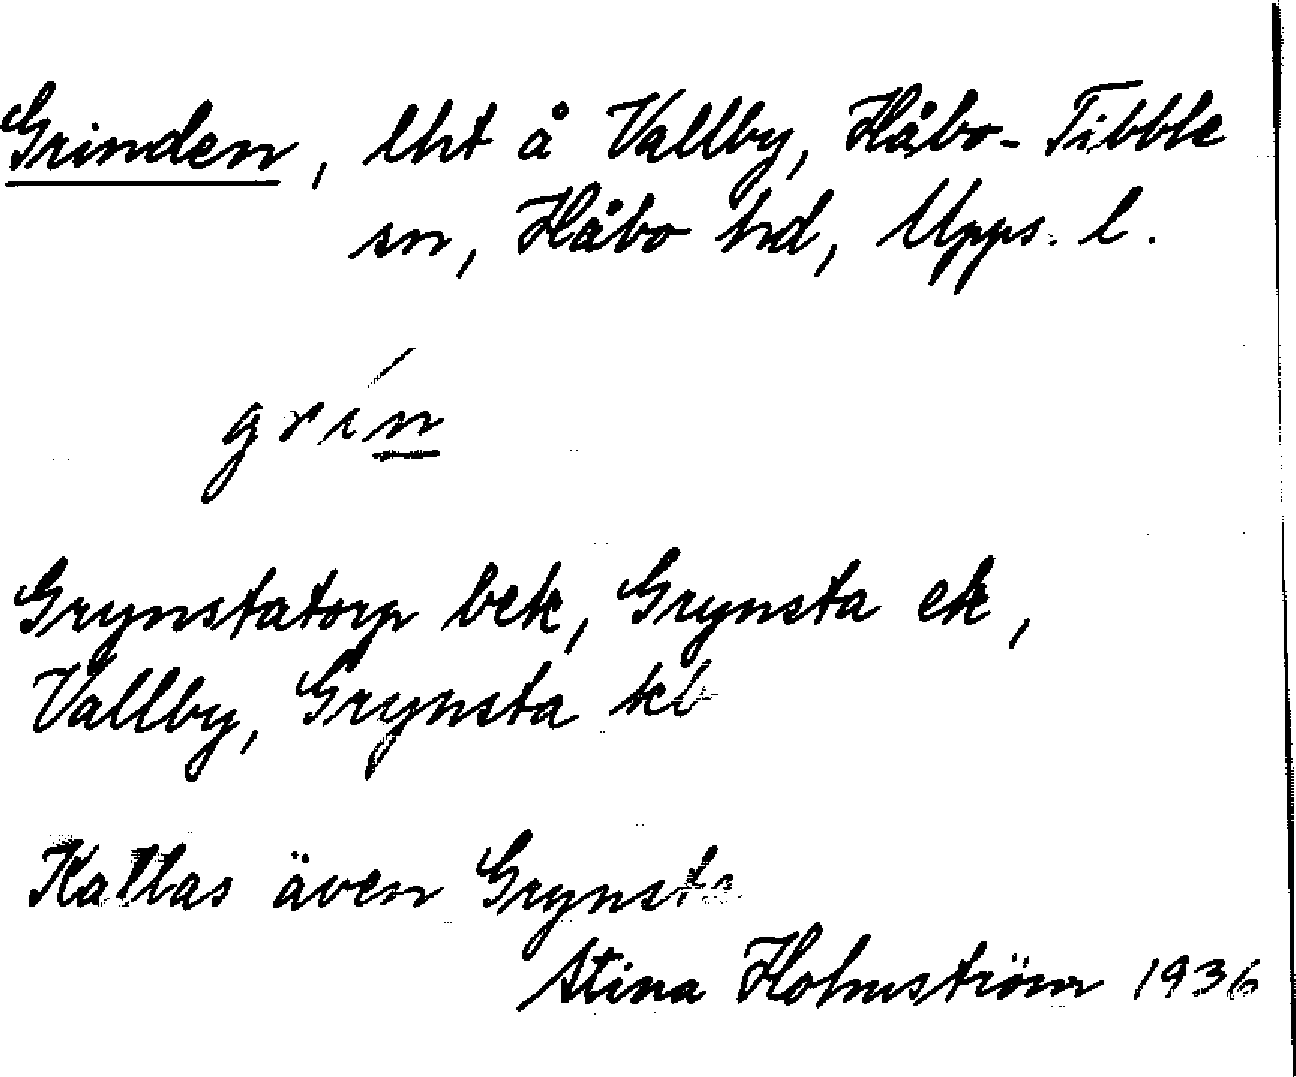 Grinden, lht å Vallby, Håbo-Tibble
sn, Håbo hd, Upps. l.
grín
Grynstatorp bek, Grynsta ek,
Vallby, Grynsta kb
Kallas även Grynsta
Stina Holmström 1936